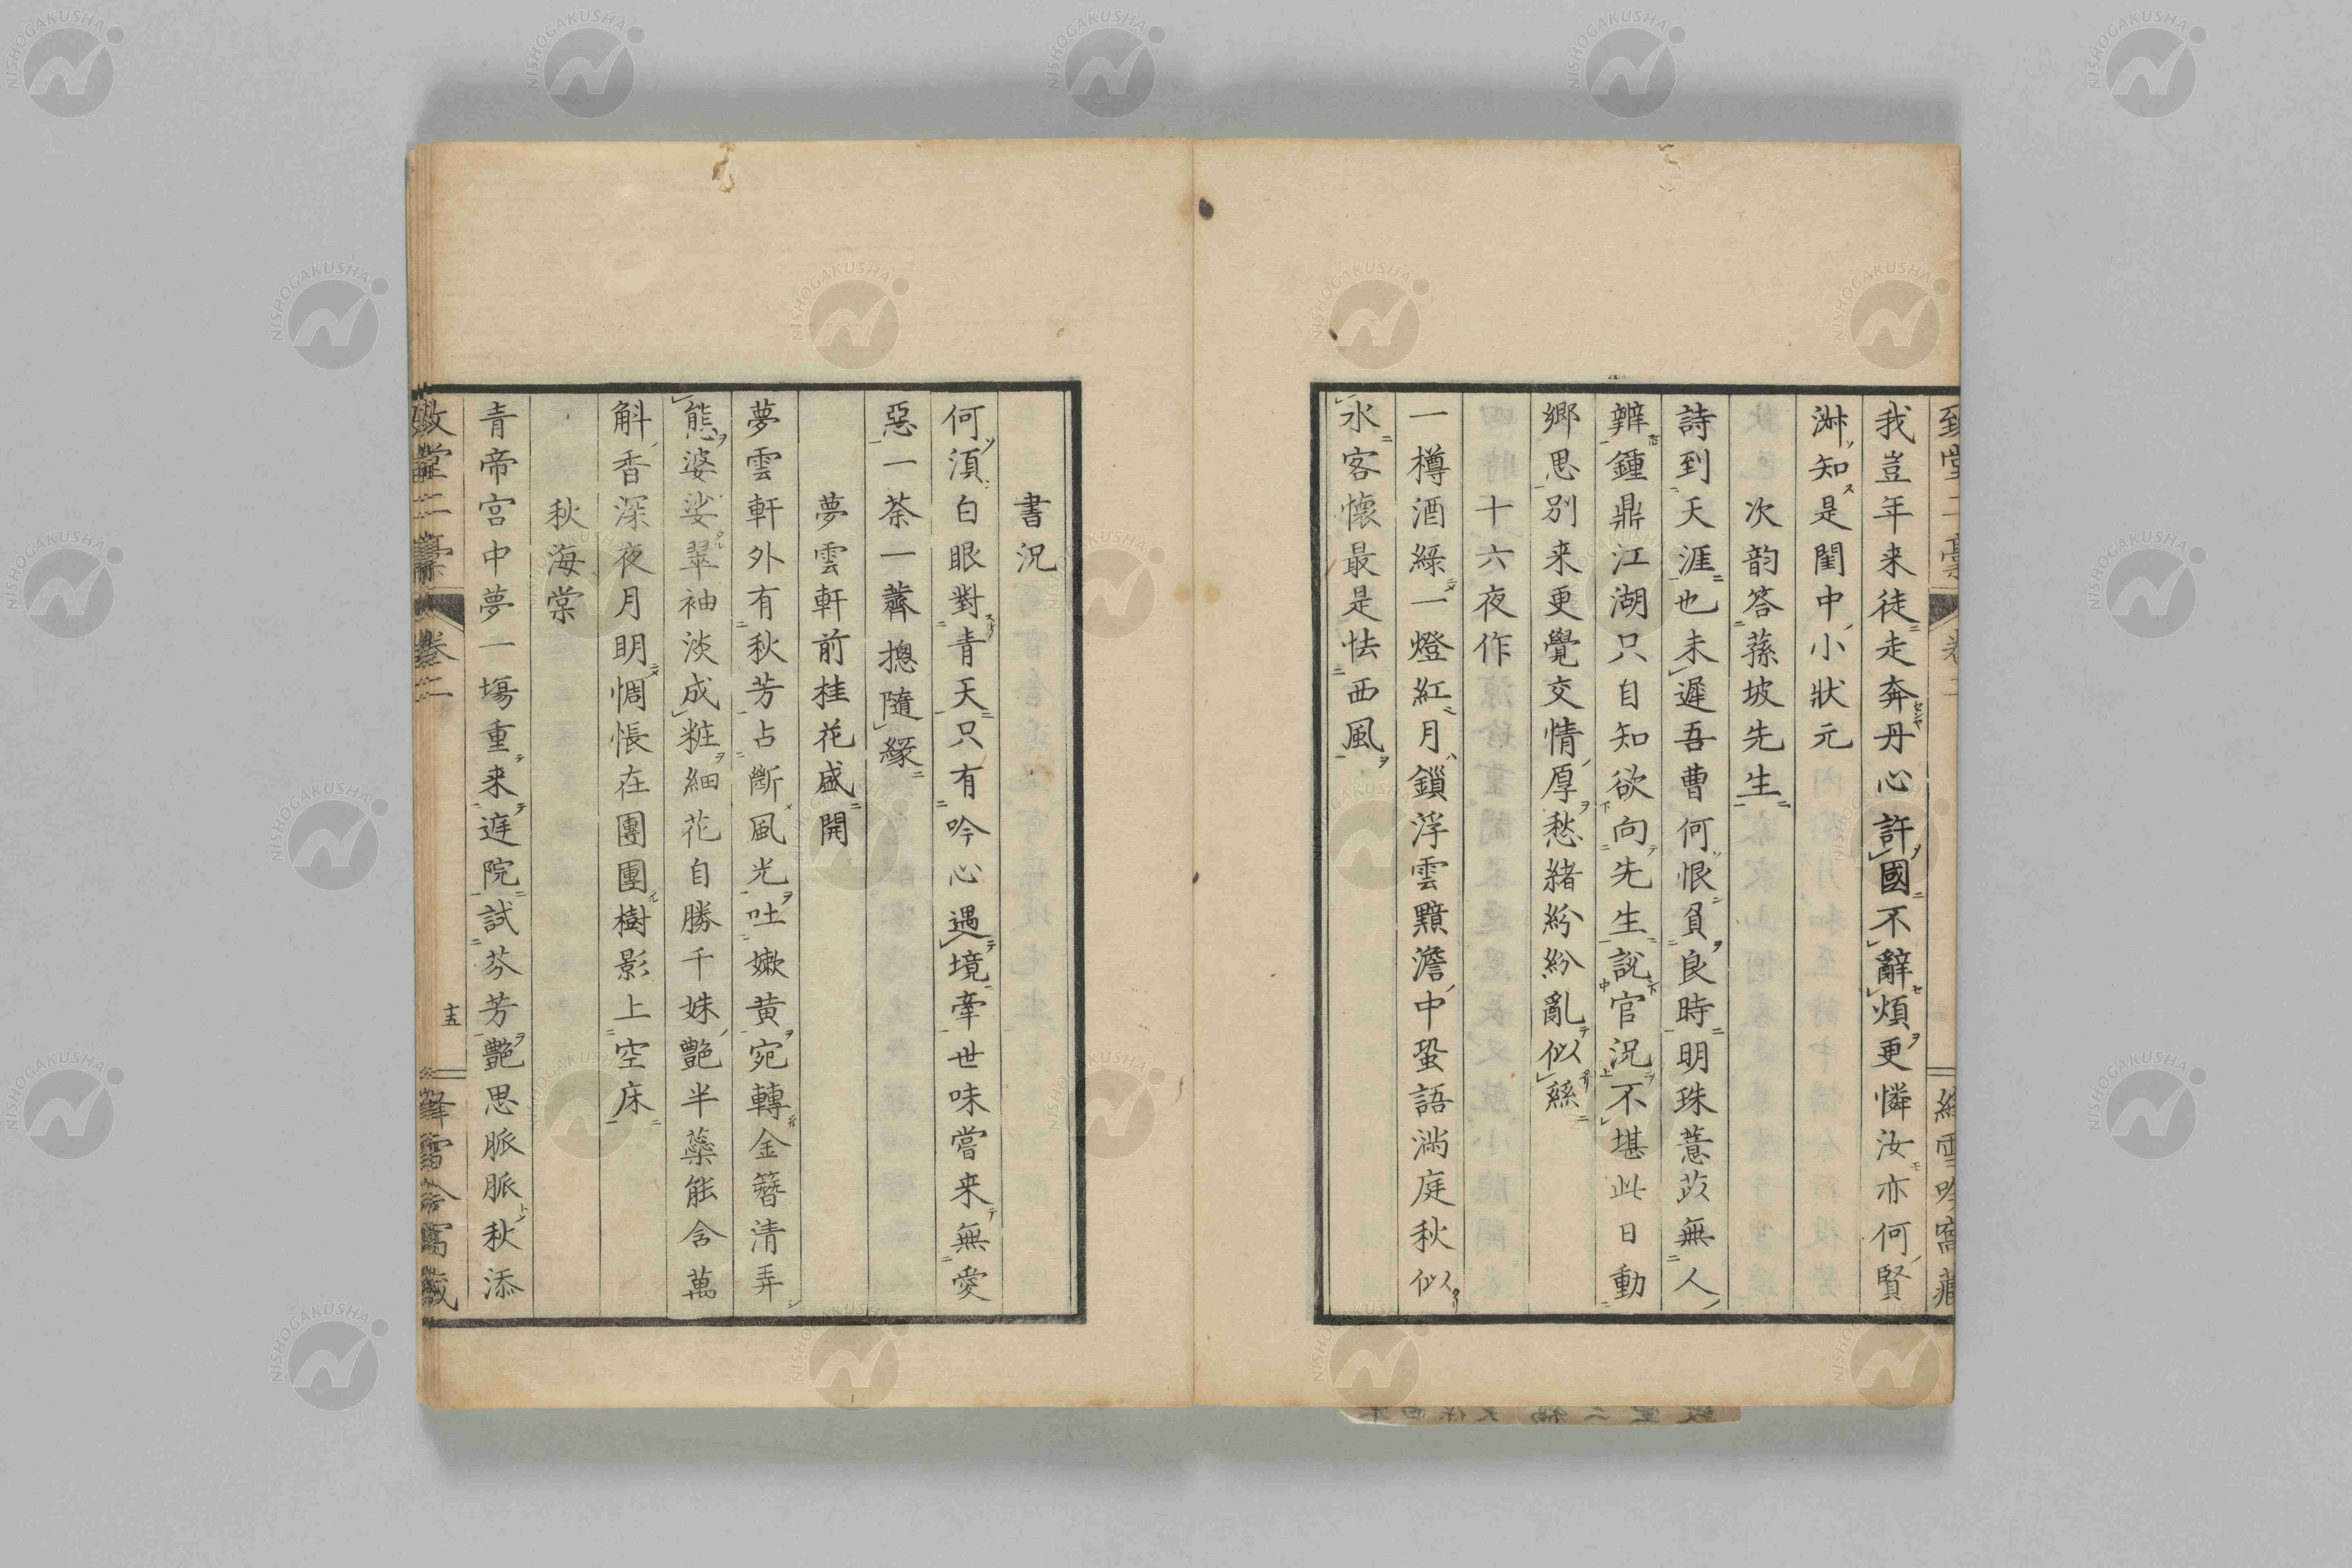 我豈年来徒走奔丹心許國不辭煩更憐汝亦何賢
淋知是閨中小狀元
次韵答蓀坡先生
詩到天涯也未遲吾曹何恨負良時明珠薏苡無人
辨鍾鼎江湖只自知欲向先生說官況不堪此日動
鄉思別来更覺交情厚愁緒紛紛亂似絲
十六夜作
一樽酒綠一燈紅月鎖浮雲黯澹中蛩語滿庭秋似
水客懷最是怯西風
書況
何湏白眼對青天只有吟心遇境牽世味嘗来無愛
惡一荼一薺摠隨緣
夢雲軒前桂花盛開
夢雲軒外有秋芳占斷風光吐嫩黄宛轉金簪清弄
態婆娑翠袖淡成粧細花自勝千姝艷半蘂能含萬
斛香深夜月明惆悵在團團樹影上空床
秋海棠
青帝宮中夢一場重来庭院試芬芳艷思脈脈秋添
卷二
十五
NISHOGAKUSHA